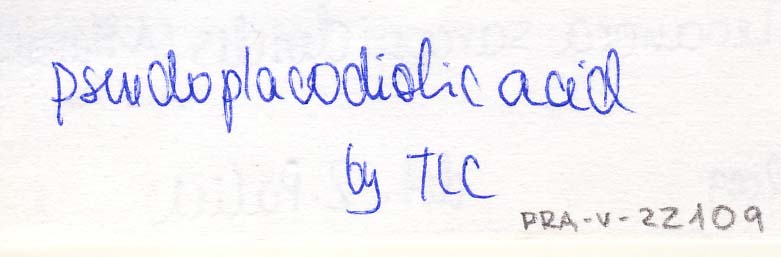 pseudoplacodiolic acid
by TLC
PRA-V-22109